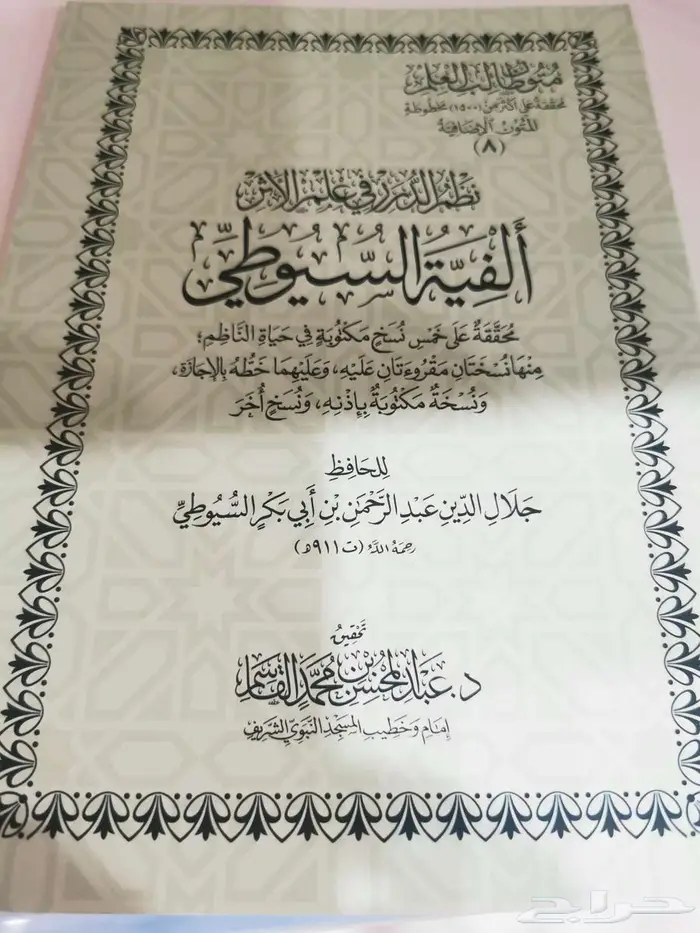 متون طالب العلم
محققة على أكثر من (١٥٠٠) مخطوطة
المتون الإضافية
(٨)
نظم الدرر في علم الأثر
ألفية السيوطي
مُحَقَّقَةٌ عَلَى خَمْسِ نُسَخٍ مَكْتُوبَةٍ فِي حَيَاةِ النَّاظِمِ؛
مِنْهَا نُسْخَتَانِ مَقْرُوءَتَانِ عَلَيْهِ، وَعَلَيْهِمَا خَطُّهُ بِالإِجَازَةِ،
وَنُسْخَةٌ مَكْتُوبَةٌ بِإِذْنِهِ، وَنُسَخٍ أُخَرَ
لِلحَافِظِ
جَلَالِ الدِّينِ عَبْدِ الرَّحْمَنِ بْنِ أَبِي بَكْرٍ السُّيُوطِيِّ
رحمهُ اللهُ (ت ٩١١هـ)
تحقيق
د. عبد المحسن بن محمد القاسم
إمام وخطيب المسجد النبوي الشريف
حراج